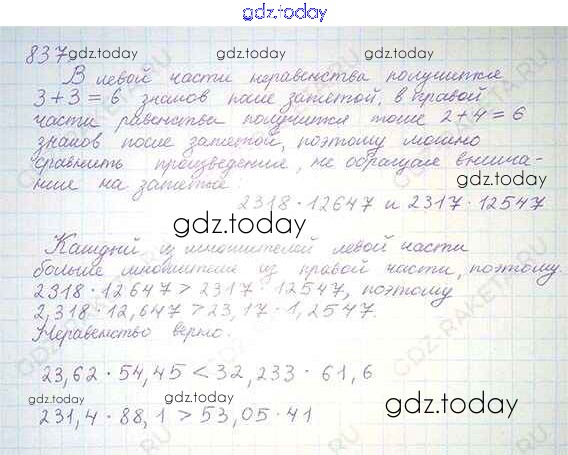 gdz.today
837 gdz.today gdz.today gdz.today
В левой части неравенства получится
3+3=6 знаков после запятой, в правой
части равенства получится тоже 2+4=6
знаков после запятой, поэтому можно
сравнить произведения, не обращая внима-
ние на запятые: gdz.today
2318·12647 и 2317·12547
gdz.today
Каждый из множителей левой части
больше множителя из правой части, поэтому
2318·12647 > 2317·12547, поэтому
2,318·12,647 > 23,17·1,2547.
Неравенство верно.
23,62·54,45 < 32,233·61,6
gdz.today gdz.today gdz.today
231,4·88,1 > 53,05·41
GDZ-RAKETA.RU